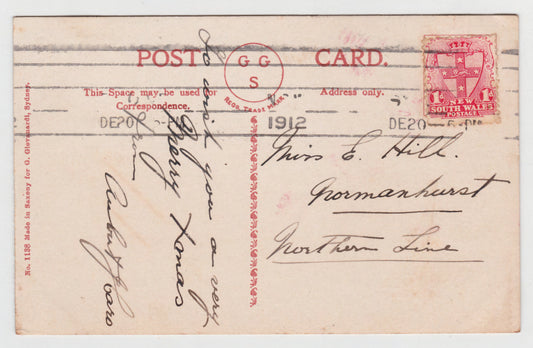 POST CARD.
G G
S
REGD. TRADE MARK
This Space may be used for
Correspondence.
Address only.
DE 20
1912
DE 20
1d
NEW
SOUTH WALES
POSTAGE
1d
To wish you a very
Merry Xmas
from
Miss E. Hill.
Normanhurst
Northern Line
No. 1138 Made in Saxony for G. Giovanardi, Sydney.